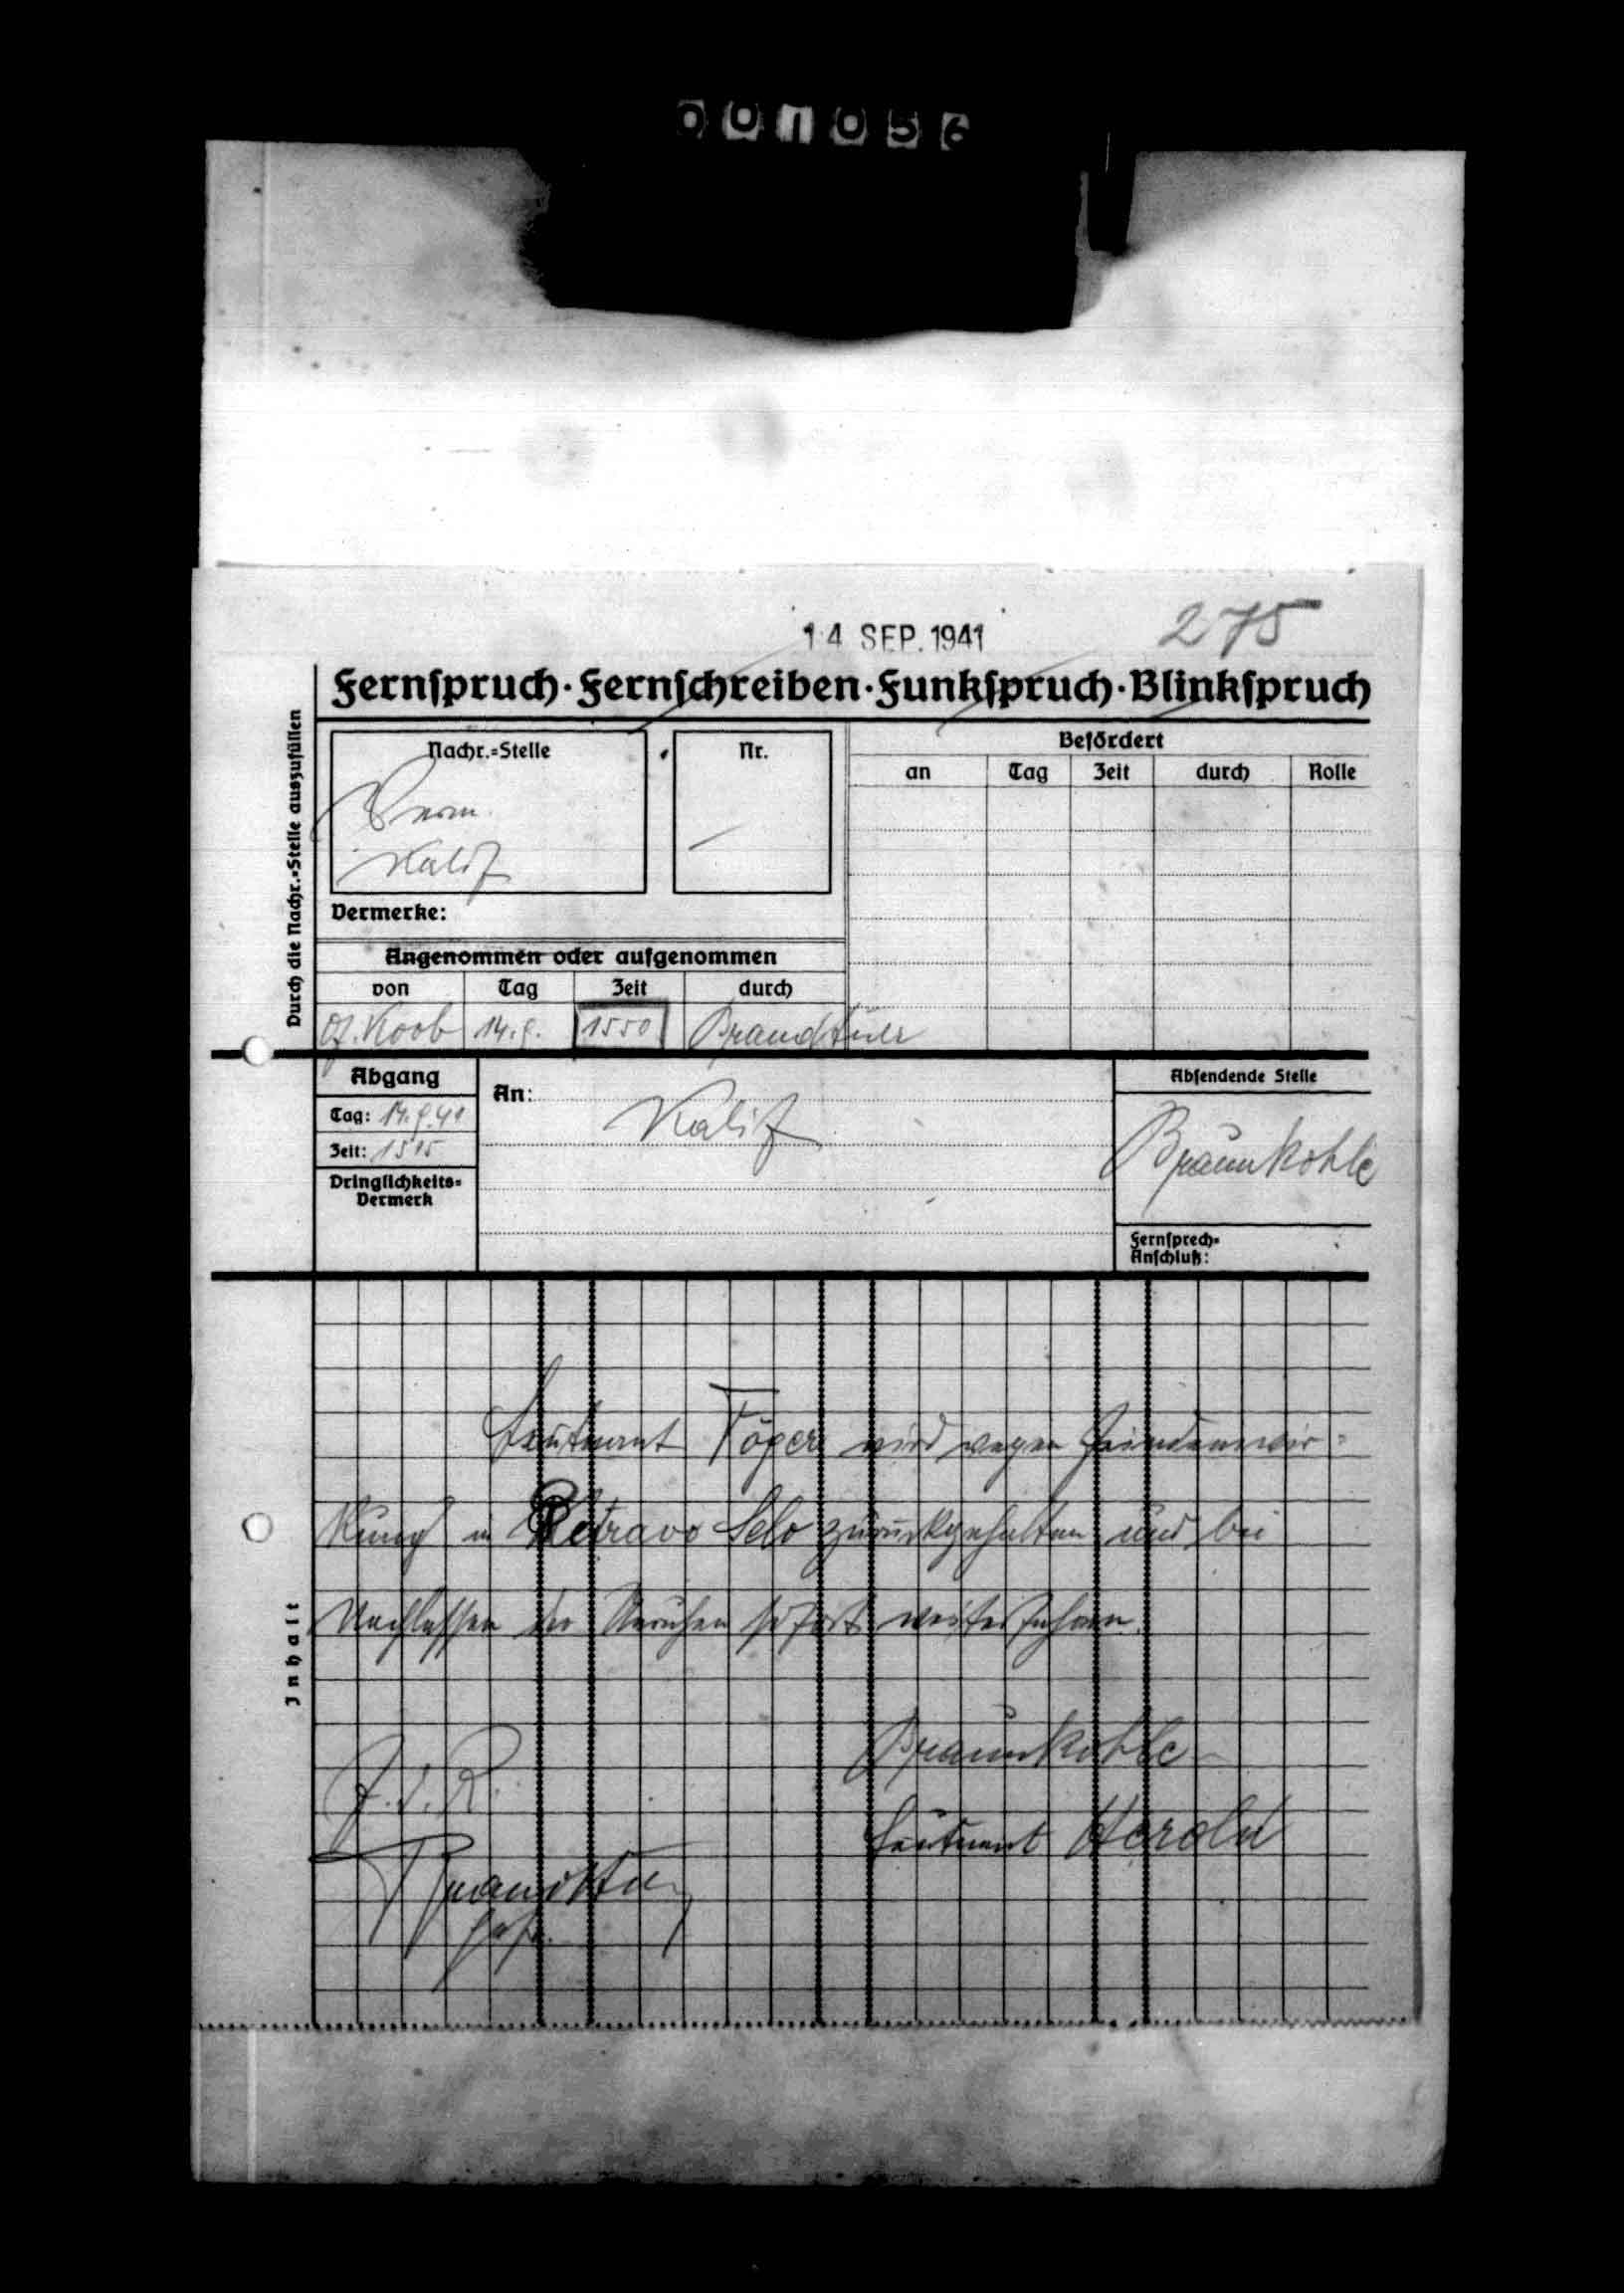 001056
14 SEP. 1941
275
Fernspruch · Fernschreiben · Funkspruch · Blinkspruch
Durch die Nachr.-Stelle auszufüllen
Nachr.-Stelle
Kalif
Nr.
Befördert
an Tag Zeit durch Rolle
Vermerke:
Angenommen oder aufgenommen
von Tag Zeit durch
Gf. Koob 14.9. 1550
Abgang
Tag: 14.9.41
Zeit: 1515
Dringlichkeits-
Vermerk
An: Kalif
Absendende Stelle
Braunkohle
Fernsprech-
Anschluß:
Inhalt
Leutnant Töger wird wegen Feindeinwir-
kung in Petravo Selo zurückgehalten und bei
Nachlassen der Unruhen sofort weiterfahren.
Braunkohle
F.d.R.
Leutnant Herold
Gefr.